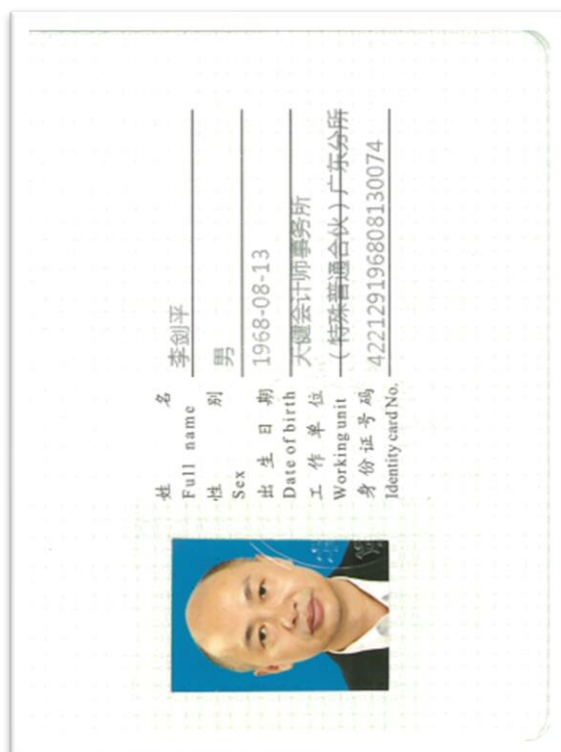 姓 名 李剑平
Full name
性 别 男
Sex
出 生 日 期 1968-08-13
Date of birth
工 作 单 位 天健会计师事务所
Working unit （特殊普通合伙）广东分所
身份证号码 422129196808130074
Identity card No.